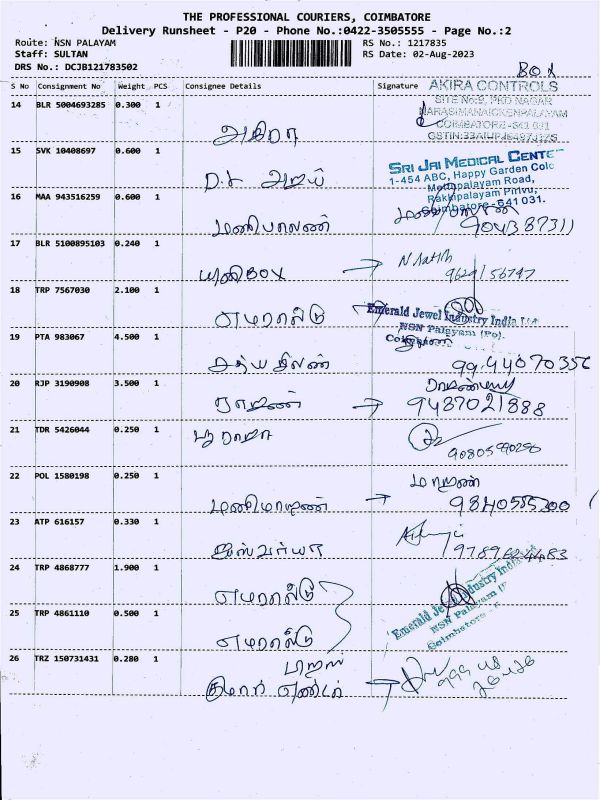 THE PROFESSIONAL COURIERS, COIMBATORE
Delivery Runsheet - P20 - Phone No.:0422-3505555 - Page No.:2
Route: NSN PALAYAM RS No.: 1217835
Staff: SULTAN RS Date: 02-Aug-2023
DRS No.: DCJB121783502
BOX
S No Consignment No Weight PCS Consignee Details Signature
AKIRA CONTROLS
14 BLR 5004693285 0.300 1
SITE No:9, PKD NAGAR
NARASIMANAICKENPALAYAM
COIMBATORE-641 031
அகிரா
15 SVK 10408697 0.600 1
SRI JAI MEDICAL CENTE
1-454 ABC, Happy Garden Colo
Mettupalayam Road,
Rakkipalayam Pirivu,
Coimbatore-641 031.
16 MAA 943516259 0.600 1
மணிபாலண் 9043387311
17 BLR 5100895103 0.240 1
யுனிBOX → 9629156747
18 TRP 7567030 2.100 1
எமரால்டு
Emerald Jewel Industry India Ltd
NSN Palayam (Po).
19 PTA 983067 4.500 1
சத்யசீலண் 9944070356
20 RJP 3190908 3.500 1
ராஜண் → 9487021888
21 TDR 5426044 0.250 1
பூராஜா
9080590296
22 POL 1580198 0.250 1
மாறண்
மணிமாறண் → 9840555200
23 ATP 616157 0.330 1
ஐஸ்வர்யா 9789624483
24 TRP 4868777 1.900 1
எமரால்டு
Emerald Jewel Industry India
NSN Palayam
Coimbatore
25 TRP 4861110 0.500 1
எமரால்டு
26 TRZ 150731431 0.280 1
குமார் எண்டர்